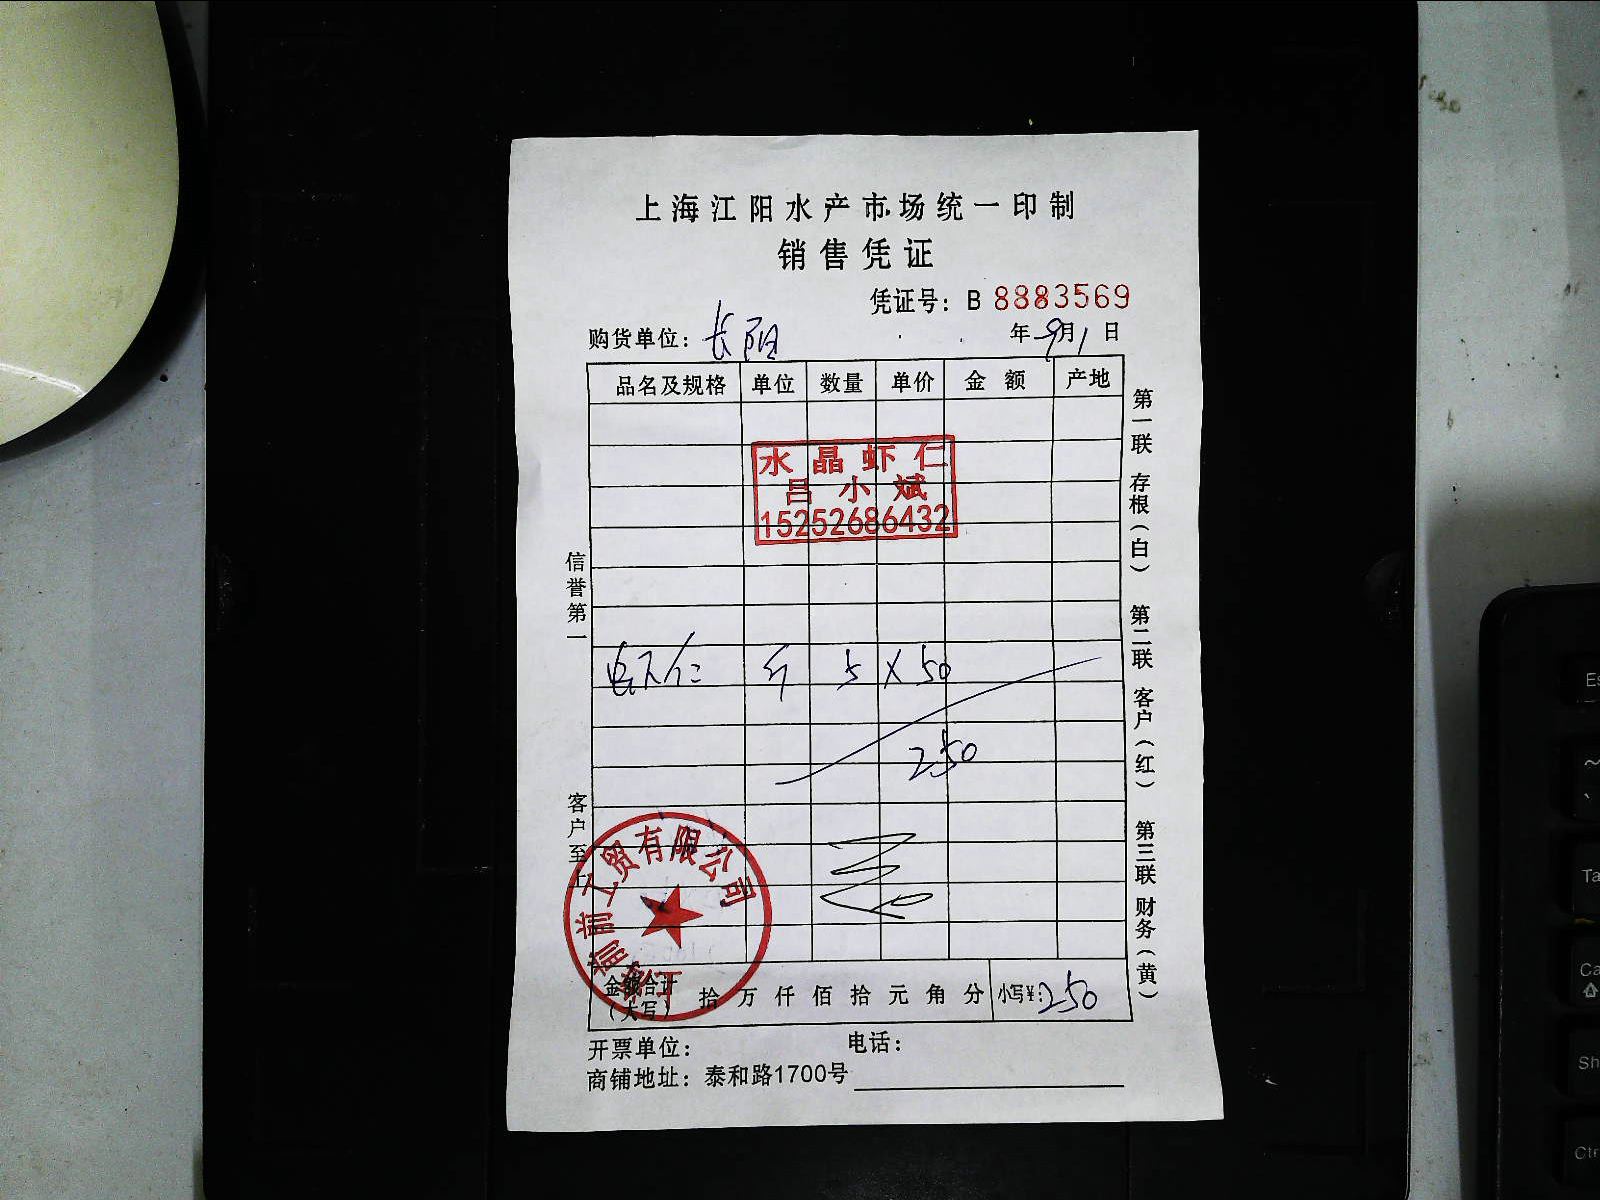 上海江阳水产市场统一印制
销售凭证
凭证号：B 8883569
购货单位：长阳 年 9月 1 日
品名及规格 单位 数量 单价 金额 产地
水晶虾仁
吕小斌
15252686432
虾仁 斤 5 X 50
250
金额合计（大写） 拾 万 仟 佰 拾 元 角 分 小写¥：250
开票单位： 电话：
商铺地址：泰和路1700号
信誉第一 客户至上
第一联 存根（白） 第二联 客户（红） 第三联 财务（黄）
工贸有限公司